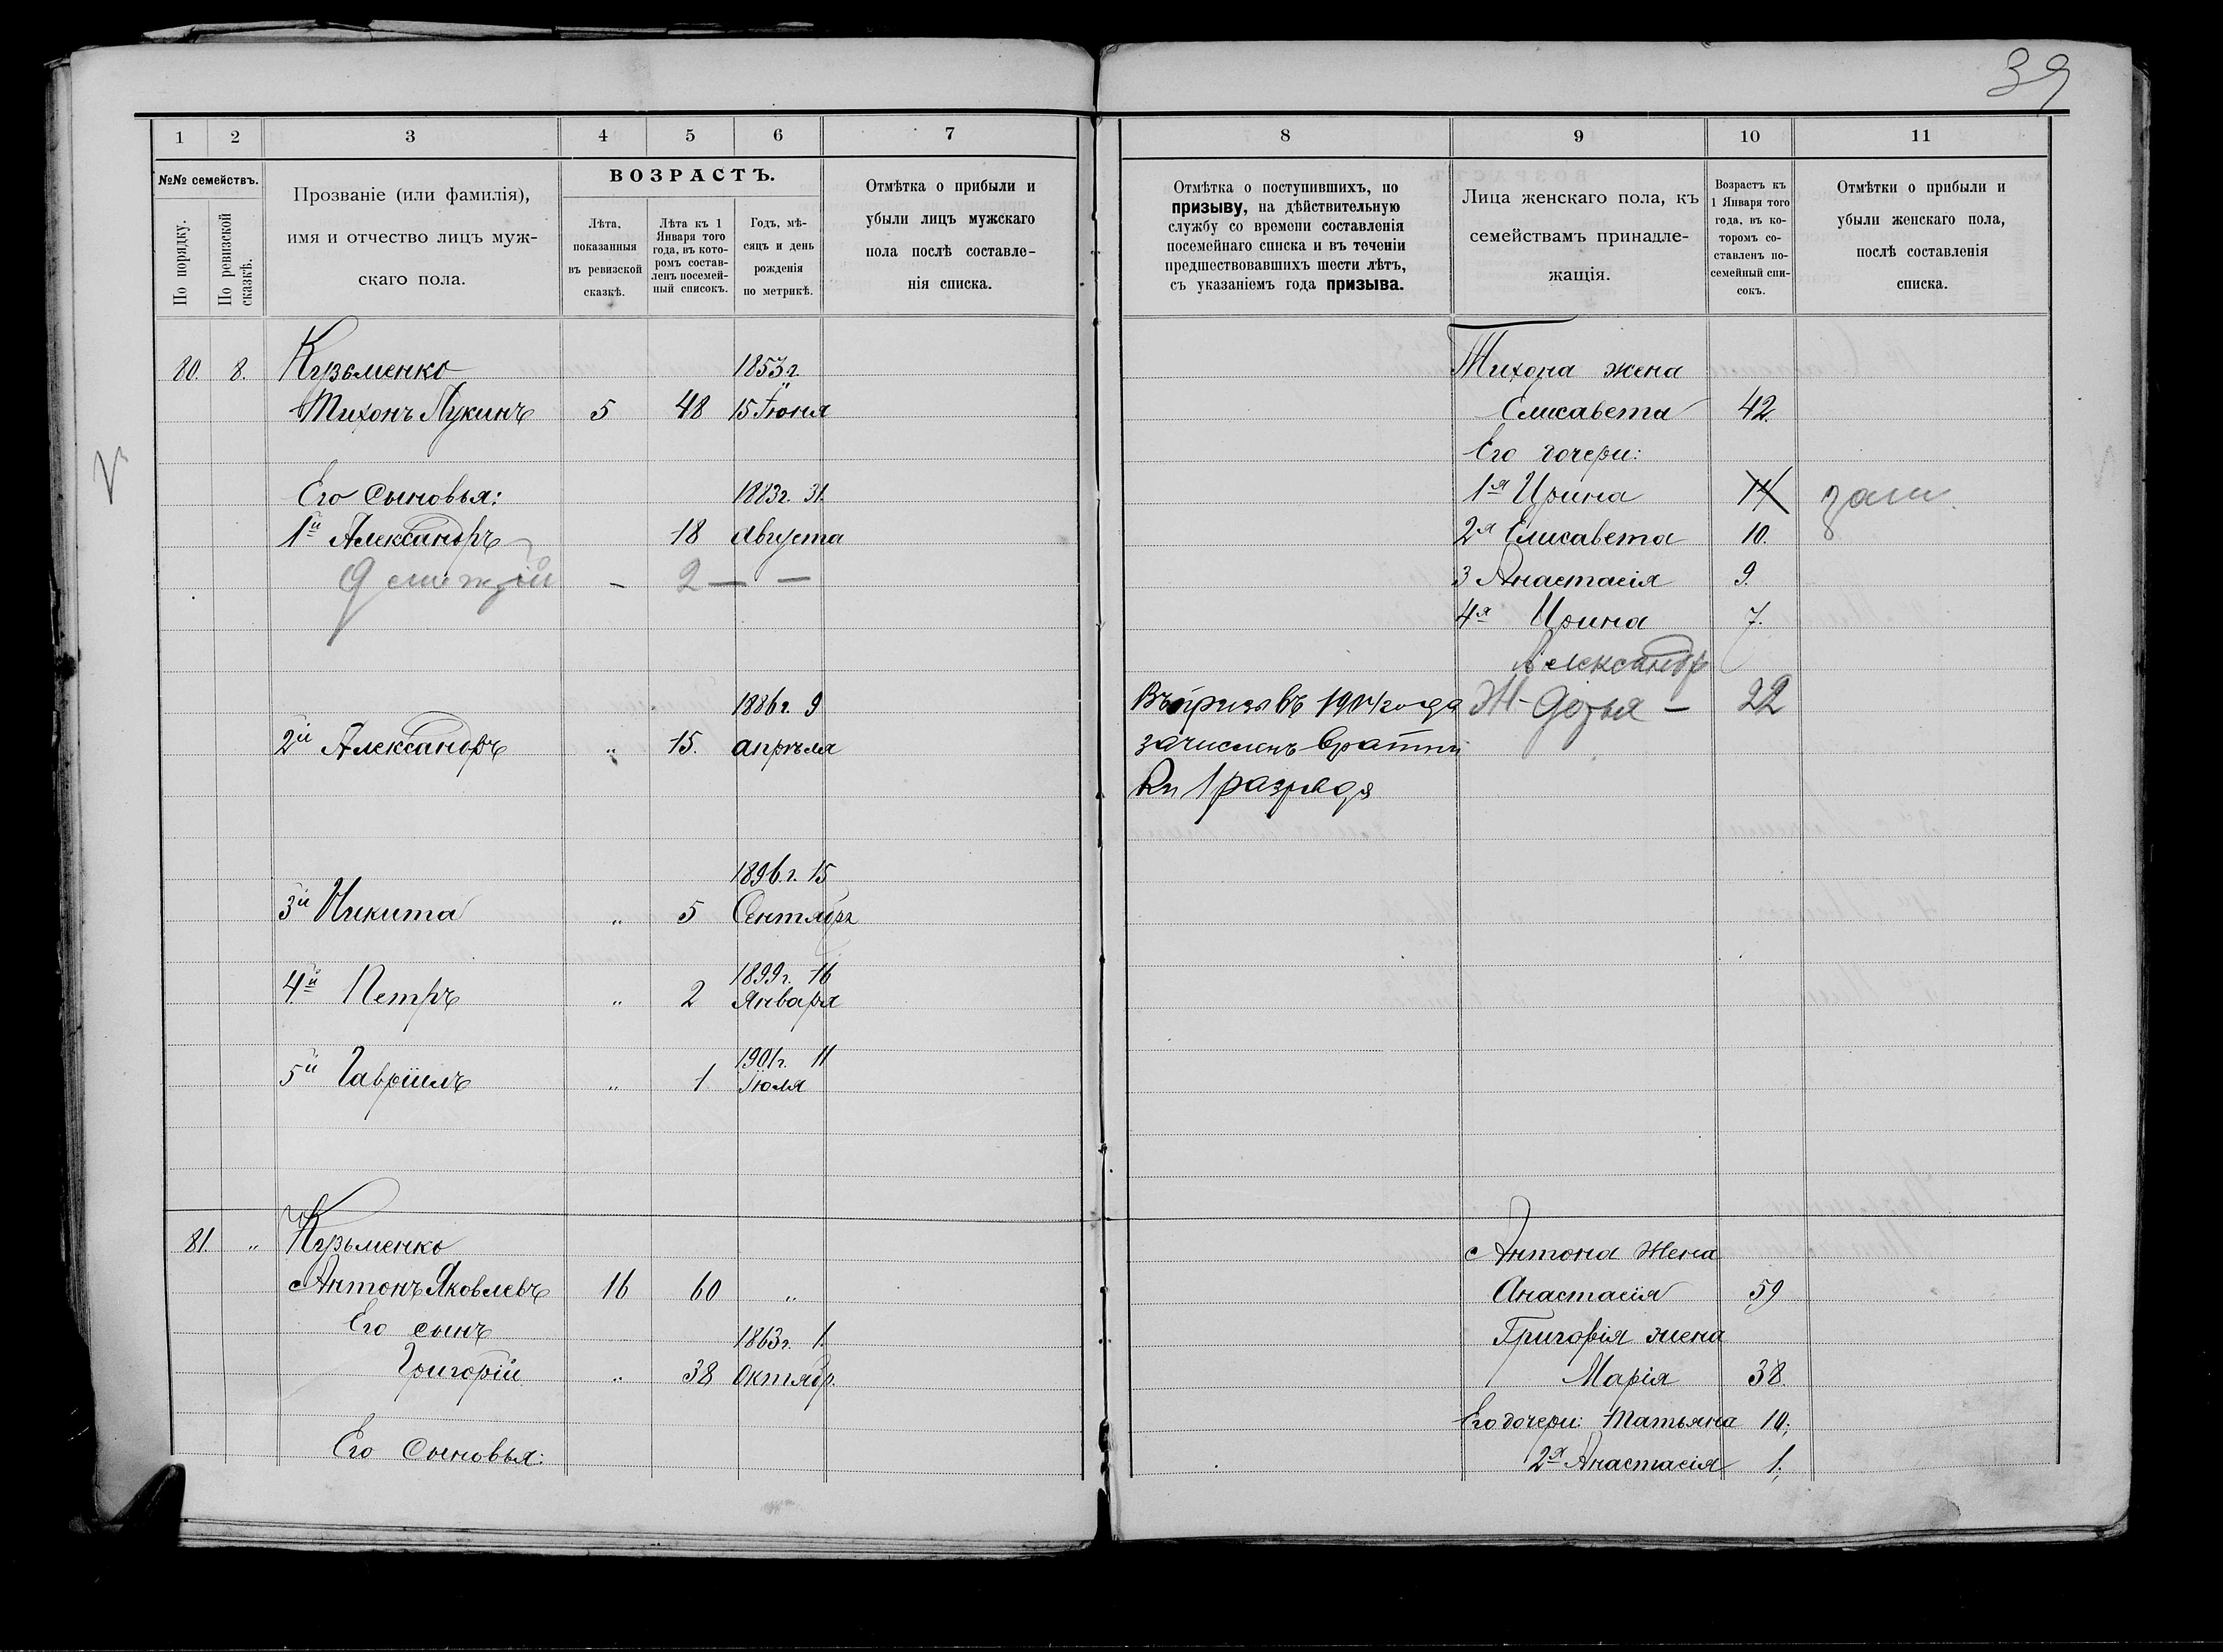 39
1 2 3 4 5 6 7
№№ семействъ.
По порядку.
По ревизской сказкѣ.
Прозваніе (или фамилія),
имя и отчество лицъ муж-
скаго пола.
ВОЗРАСТЪ.
Лѣта,
показанныя
въ ревизской
сказкѣ.
Лѣта къ 1
Января того
года, въ кото-
ромъ состав-
ленъ посемей-
ный списокъ.
Годъ, мѣ-
сяцъ и день
рожденія
по метрикѣ.
Отмѣтка о прибыли и
убыли лицъ мужскаго
пола послѣ составле-
нія списка.
80. 8. Кузьменко 1853 г.
Тихонъ Лукинъ 5 48 15 Іюня
Его Сыновья: 1883 г. 31.
1й Александръ 18 Августа
— 2 — —
1886 г. 9
2й Александръ „ 15. апрѣля
1896 г. 15
3й Никита „ 5 Сентября
1899 г. 16
4й Петръ „ 2 Января
1901 г. 11
5й Гавріилъ „ 1 Іюля
81. „ Кузьменко
Антонъ Яковлевъ 16 60 „
Его сынъ 1863 г. 1.
Григорій „ 38 Октябр.
Его Сыновья:
8 9 10 11
Отмѣтка о поступившихъ, по
призыву, на дѣйствительную
службу со времени составленія
посемейнаго списка и въ теченіи
предшествовавшихъ шести лѣтъ,
съ указаніемъ года призыва.
Лица женскаго пола, къ
семействамъ принадле-
жащія.
Возрастъ къ
1 Января того
года, въ ко-
торомъ со-
ставленъ по-
семейный спи-
сокъ.
Отмѣтки о прибыли и
убыли женскаго пола,
послѣ составленія
списка.
Тихона жена
Елисавета 42.
Его дочери:
1я Ирина 14 зам.
2я Елисавета 10.
3 Анастасія 9.
4я Ирина 7.
Александр
Въ призывъ 1904 года Ж — 22
зачисленъ въ ратни
ки 1 разряда
Антона Жена
Анастасія 59
Григорія жена
Марія 38.
Его дочери: Татьяна 10;
2я Анастасія 1;